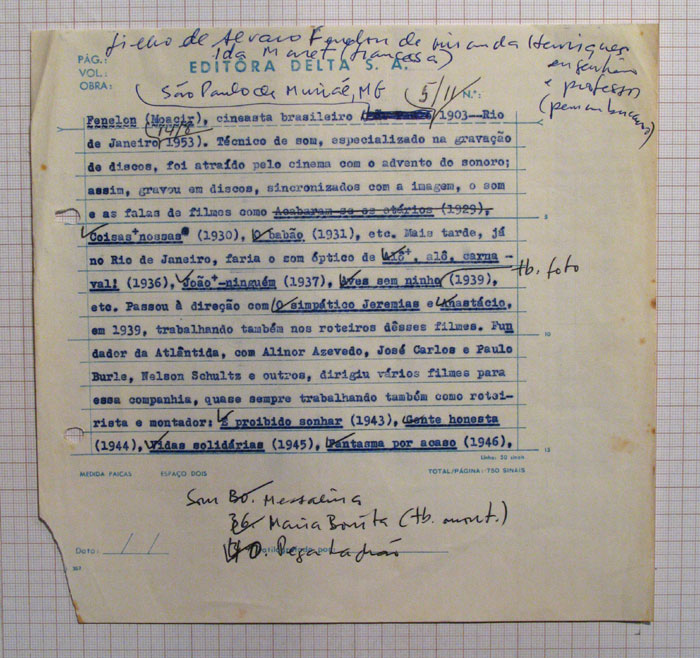 filho de Alvaro Fenelon de Miranda Henriques,
Ida Manet (francesa)
engenheiro
e professor
(pernambucano)
PÁG.:
VOL.:
OBRA:
EDITÔRA DELTA S. A.
N.º:
São Paulo de Muriaé, MG
5/11
Fenelon (Moacir), cineasta brasileiro 1903--Rio
14/8
de Janeiro 1953). Técnico de som, especializado na gravação
de discos, foi atraído pelo cinema com o advento do sonoro;
assim, gravou em discos, sincronizados com a imagem, o som
e as falas de filmes como Acabaram-se os otários (1929),
Coisas nossas (1930), O babão (1931), etc. Mais tarde, já
no Rio de Janeiro, faria o som óptico de Alô, alô, carna-
val! (1936), João-ninguém (1937), Aves sem ninho (1939),
tb. foto
etc. Passou à direção com O simpático Jeremias e Anastácio,
em 1939, trabalhando também nos roteiros dêsses filmes. Fun
dador da Atlântida, com Alinor Azevedo, José Carlos e Paulo
Burle, Nelson Schultz e outros, dirigiu vários filmes para
essa companhia, quase sempre trabalhando também como rotei-
rista e montador: É proibido sonhar (1943), Gente honesta
(1944), Vidas solidárias (1945), Fantasma por acaso (1946),
5
10
15
Linha: 50 sinais
MEDIDA PAICAS ESPAÇO DOIS TOTAL/PÁGINA: 750 SINAIS
Som Bo. Messalina
36. Maria Bonita (tb. mont.)
40. Pega ladrão
Data: / /
por